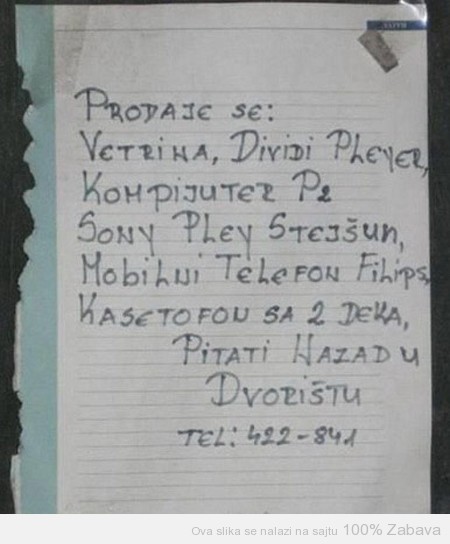 Prodaje se:
Vetrina, Dividi Pleyer,
Kompijuter P2
Sony Pley Stejšun,
Mobilni Telefon Filips,
Kasetofon sa 2 deka,
Pitati Nazad u
Dvorištu
Tel: 422-841
Ova slika se nalazi na sajtu 100% Zabava